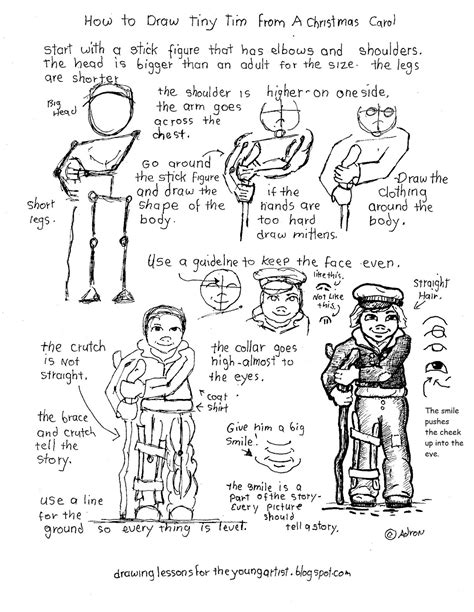 How to Draw Tiny Tim from A Christmas Carol
Start with a stick figure that has elbows and shoulders.
The head is bigger than an adult for the size. the legs
are shorter
Big
Head
the shoulder is higher on one side,
the arm goes
across the
chest.
Go around
the stick figure
and draw the
shape of the
body.
Short
legs.
if the
hands are
too hard
draw mittens.
Draw the
clothing
around the
body.
Use a guidelne to keep the face even.
like this.
Not like
this.
Straight
Hair.
the crutch
is Not
straight.
the collar goes
high-almost to
the eyes.
coat
shirt
the brace
and crutch
tell the
story.
Give him a big
Smile!
The smile
pushes
the cheek
up into the
eve.
the smile is a
part of the story-
Every picture
should
tell a story.
Use a line
for the
ground so every thing is level.
© Adron
drawing lessons for the young artist. blogspot.com